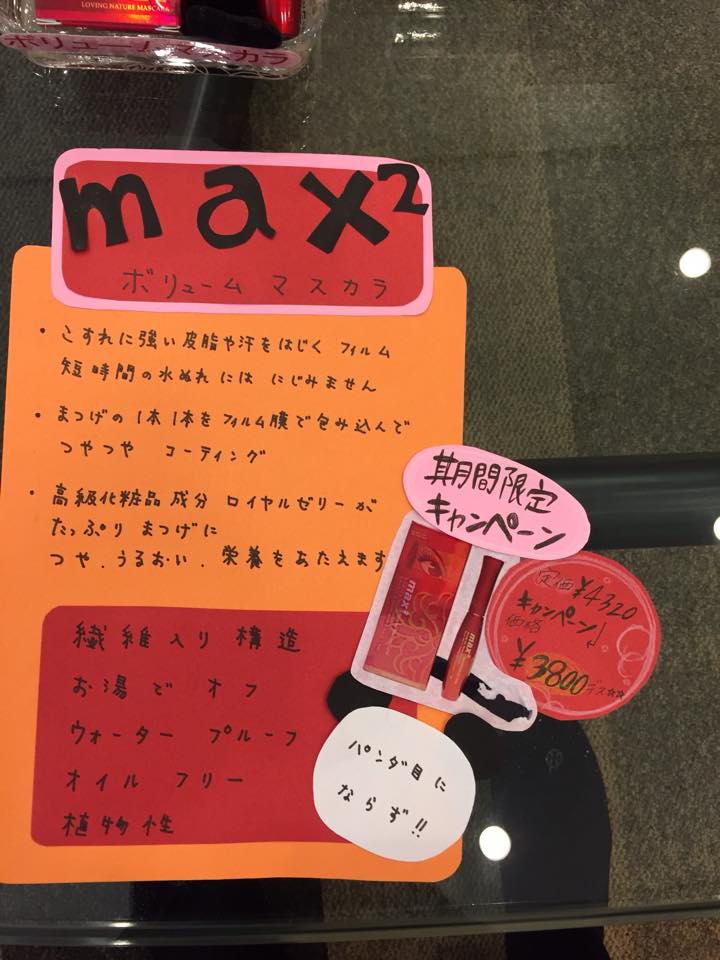 LOVING NATURE MASCARA
ボリュームマスカラ
max²
ボリューム マスカラ
・こすれに強い皮脂や汗をはじく フィルム
短時間の水ぬれには にじみません
・まつげの 1本1本を フィルム膜で包み込んで
つやつや コーティング
・高級化粧品成分 ロイヤルゼリーが
たっぷり まつげに
つや.うるおい.栄養をあたえます
期間限定
キャンペーン
定価 ¥4320
キャンペーン♪
価格
¥3800デス☆☆
max²
max²
繊維入り構造
お湯で オフ
ウォーター プルーフ
オイル フリー
植物性
パンダ目に
ならず!!